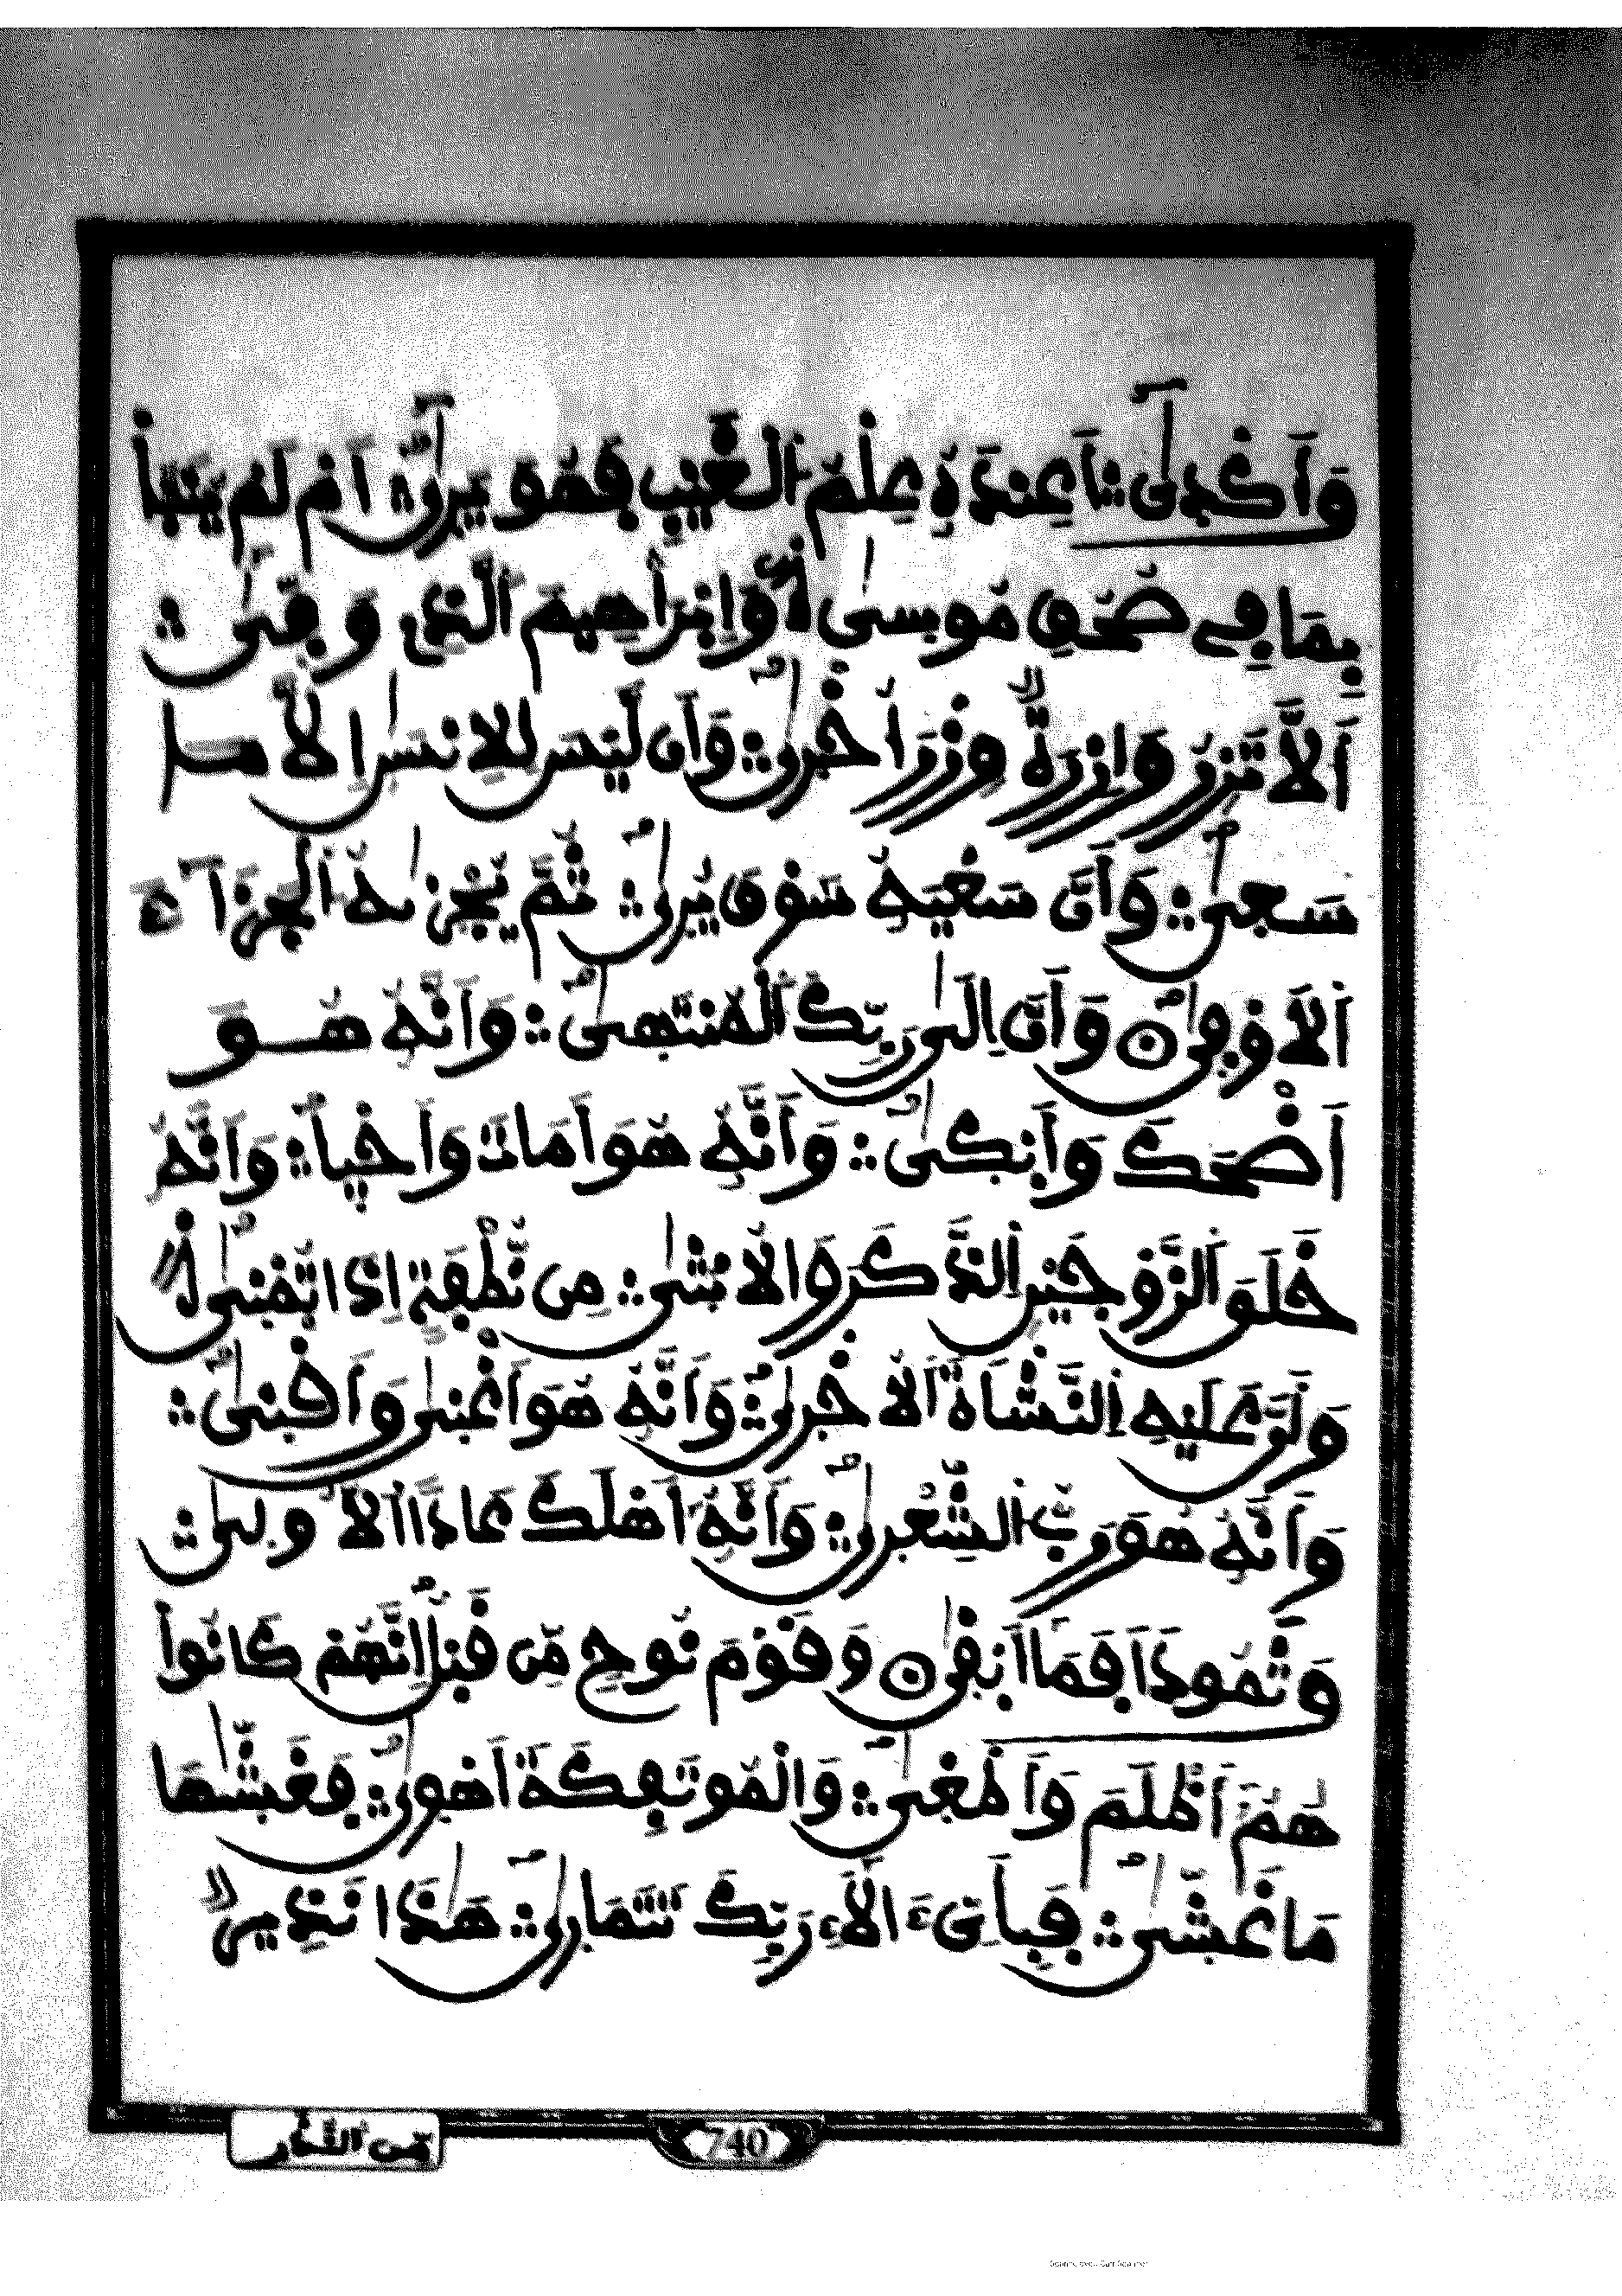 وَأَكْدىٰٓ ۝ أَعِندَهُۥ عِلْمُ اُ۬لْغَيْبِ فَهُوَ يَر۪ىٰٓ ۝ أَمْ لَمْ يُنَبَّأْ
بِمَا فِے صُحُفِ مُوس۪ىٰ ۝ وَإِبْرَٰهِيمَ اَ۬لذِے وَفّ۪ىٰٓ ۝
أَلَّا تَزِرُ وَازِرَةٌ وِزْرَ أُخْر۪ىٰ ۝ وَأَن لَّيْسَ لِلِانسَٰنِ إِلَّا مَا
سَع۪ىٰ ۝ وَأَنَّ سَعْيَهُۥ سَوْفَ يُر۪ىٰ ۝ ثُمَّ يُجْز۪ىٰهُ اُ۬لْجَزَآءَ
اَ۬لَاوْف۪ىٰ ۝ وَأَنَّ إِلَىٰ رَبِّكَ اَ۬لْمُنتَه۪ىٰ ۝ وَأَنَّهُۥ هُوَ
أَضْحَكَ وَأَبْك۪ىٰ ۝ وَأَنَّهُۥ هُوَ أَمَاتَ وَأَحْيَا ۝ وَأَنَّهُۥ
خَلَقَ اَ۬لزَّوْجَيْنِ اِ۬لذَّكَرَ وَالُانث۪ىٰ ۝ مِن نُّطْفَةٍ اِذَا تُمْن۪ىٰ ۝
وَأَنَّ عَلَيْهِ اِ۬لنَّشْأَةَ اَ۬لُاخْر۪ىٰ ۝ وَأَنَّهُۥ هُوَ أَغْن۪ىٰ وَأَقْن۪ىٰ ۝
وَأَنَّهُۥ هُوَ رَبُّ اُ۬لشِّعْر۪ىٰ ۝ وَأَنَّهُۥٓ أَهْلَكَ عَاداً اَ۬لُاول۪ىٰ ۝
وَثَمُوداً فَمَآ أَبْق۪ىٰ ۝ وَقَوْمَ نُوحٍ مِّن قَبْلُ إِنَّهُمْ كَانُواْ
هُمُۥٓ أَظْلَمَ وَأَطْغ۪ىٰ ۝ وَالْمُوتَفِكَةَ أَهْو۪ىٰ ۝ فَغَشّ۪ىٰهَا
مَا غَشّ۪ىٰ ۝ فَبِأَيِّ ءَالَآءِ رَبِّكَ تَتَمَار۪ىٰ ۝ هَٰذَا نَذِيرٌ
مِّنَ اَ۬لنُّذُرِ
740